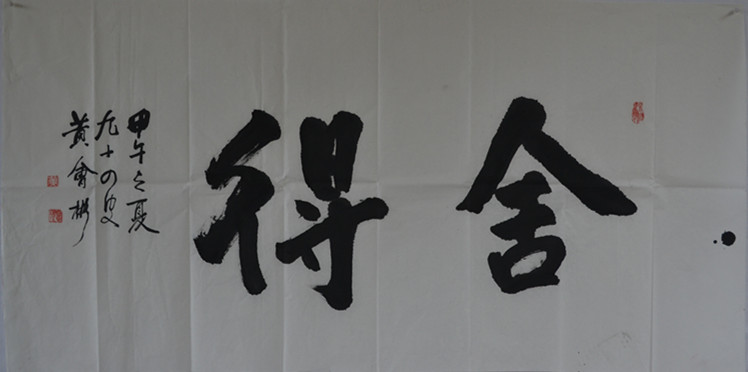 舍得
甲午之夏
九十四叟
黄會彬